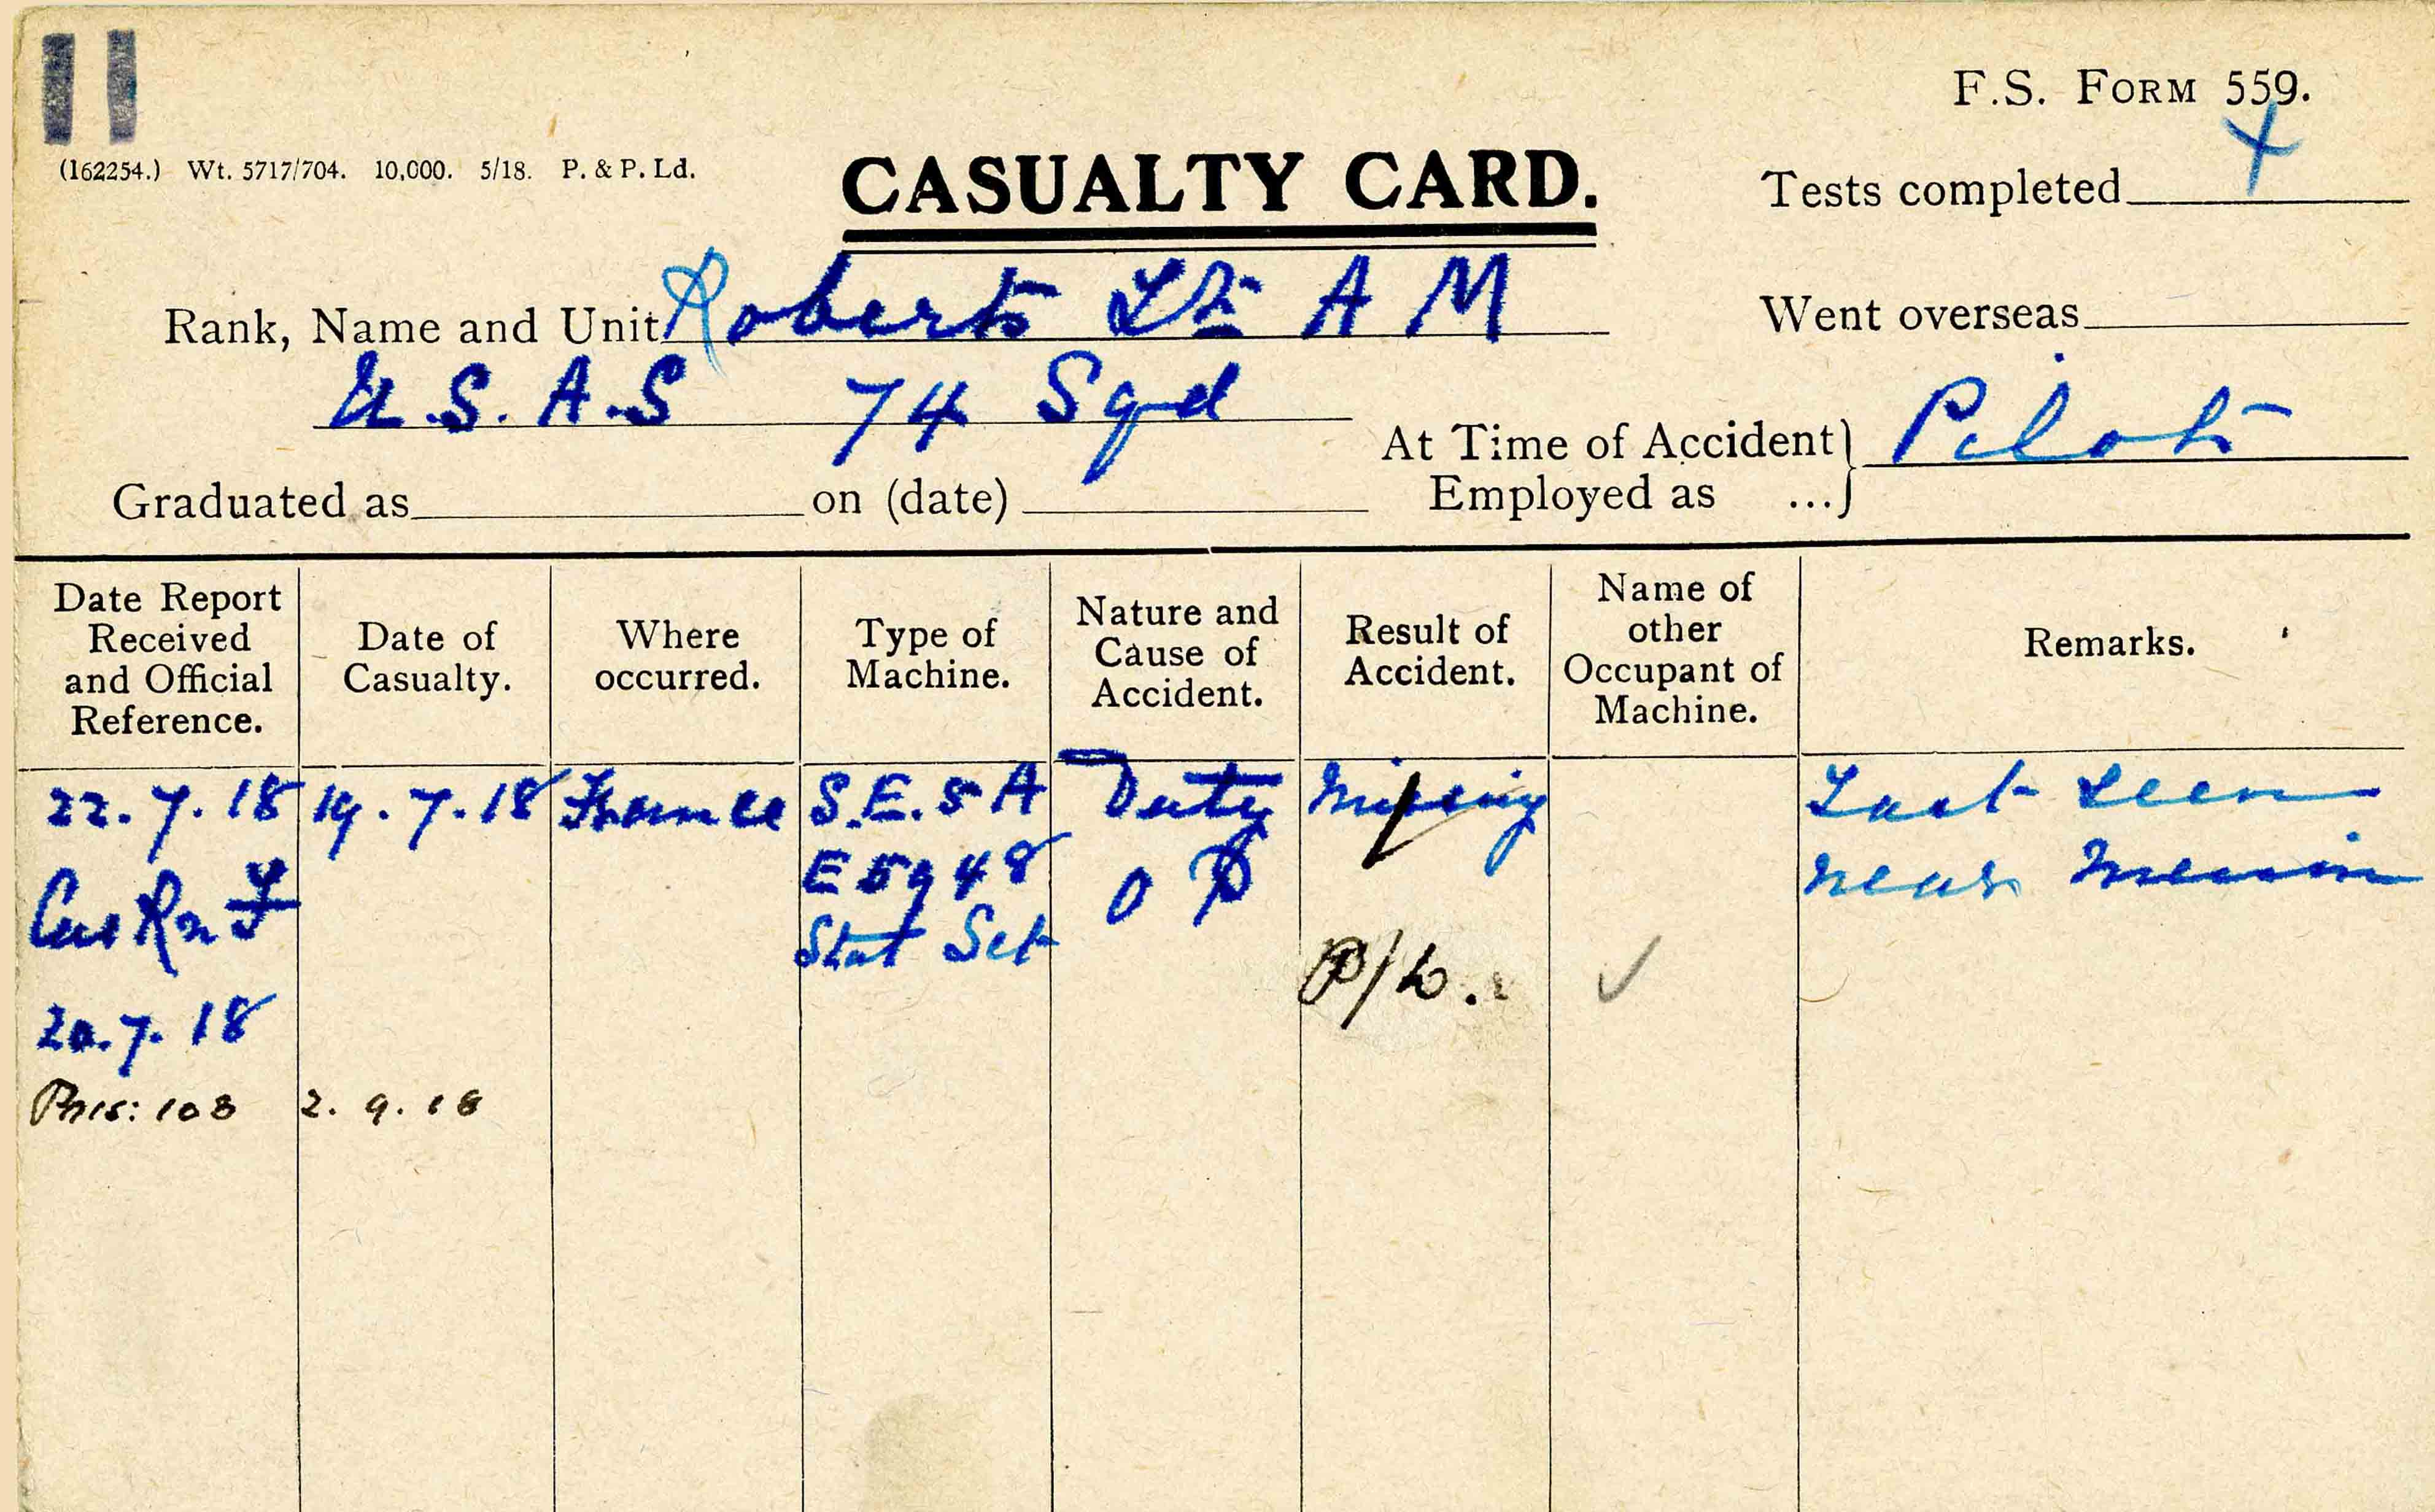 F.S. FORM 559.
(162254.) Wt. 5717/704. 10,000. 5/18. P. & P. Ld.
CASUALTY CARD.
Tests completed
Rank, Name and Unit Roberts Lt A M
Went overseas
U.S.A.S 74 Sqd
At Time of Accident Employed as ... Pilot
Graduated as on (date)
Date Report Received and Official Reference.
Date of Casualty.
Where occurred.
Type of Machine.
Nature and Cause of Accident.
Result of Accident.
Name of other Occupant of Machine.
Remarks.
22.7.18 19.7.18 France S.E.5A Duty Missing Last seen
E5948 near Menin
Cas Rn F Stat Set O P
P/W.
20.7.18
Pris: 108 2.9.18